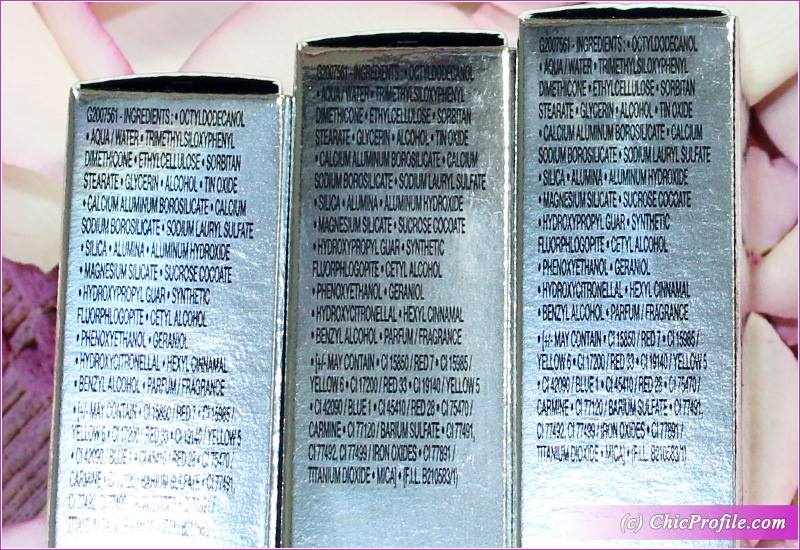 G2007561 - INGREDIENTS: • OCTYLDODECANOL
• AQUA / WATER • TRIMETHYLSILOXYPHENYL
DIMETHICONE • ETHYLCELLULOSE • SORBITAN
STEARATE • GLYCERIN • ALCOHOL • TIN OXIDE
• CALCIUM ALUMINUM BOROSILICATE • CALCIUM
SODIUM BOROSILICATE • SODIUM LAURYL SULFATE
• SILICA • ALUMINA • ALUMINUM HYDROXIDE
• MAGNESIUM SILICATE • SUCROSE COCOATE
• HYDROXYPROPYL GUAR • SYNTHETIC
FLUORPHLOGOPITE • CETYL ALCOHOL
• PHENOXYETHANOL • GERANIOL
HYDROXYCITRONELLAL • HEXYL CINNAMAL
• BENZYL ALCOHOL • PARFUM / FRAGRANCE
• [+/- MAY CONTAIN • CI 15850 / RED 7 • CI 15985 /
YELLOW 6 • CI 17200 / RED 33 • CI 19140 / YELLOW 5
• CI 42090 / BLUE 1 • CI 45410 / RED 28 • CI 75470 /
CARMINE • CI 77120 / BARIUM SULFATE • CI 77491,
CI 77492, CI 77499 / IRON OXIDES • CI 77891 /
TITANIUM DIOXIDE
G2007561 - INGREDIENTS: • OCTYLDODECANOL
• AQUA / WATER • TRIMETHYLSILOXYPHENYL
DIMETHICONE • ETHYLCELLULOSE • SORBITAN
STEARATE • GLYCERIN • ALCOHOL • TIN OXIDE
• CALCIUM ALUMINUM BOROSILICATE • CALCIUM
SODIUM BOROSILICATE • SODIUM LAURYL SULFATE
• SILICA • ALUMINA • ALUMINUM HYDROXIDE
• MAGNESIUM SILICATE • SUCROSE COCOATE
• HYDROXYPROPYL GUAR • SYNTHETIC
FLUORPHLOGOPITE • CETYL ALCOHOL
• PHENOXYETHANOL • GERANIOL
HYDROXYCITRONELLAL • HEXYL CINNAMAL
• BENZYL ALCOHOL • PARFUM / FRAGRANCE
• [+/- MAY CONTAIN • CI 15850 / RED 7 • CI 15985 /
YELLOW 6 • CI 17200 / RED 33 • CI 19140 / YELLOW 5
• CI 42090 / BLUE 1 • CI 45410 / RED 28 • CI 75470 /
CARMINE • CI 77120 / BARIUM SULFATE • CI 77491,
CI 77492, CI 77499 / IRON OXIDES • CI 77891 /
TITANIUM DIOXIDE • MICA] • (F.I.L. B210583/1)
G2007561 - INGREDIENTS: • OCTYLDODECANOL
• AQUA / WATER • TRIMETHYLSILOXYPHENYL
DIMETHICONE • ETHYLCELLULOSE • SORBITAN
STEARATE • GLYCERIN • ALCOHOL • TIN OXIDE
• CALCIUM ALUMINUM BOROSILICATE • CALCIUM
SODIUM BOROSILICATE • SODIUM LAURYL SULFATE
• SILICA • ALUMINA • ALUMINUM HYDROXIDE
• MAGNESIUM SILICATE • SUCROSE COCOATE
• HYDROXYPROPYL GUAR • SYNTHETIC
FLUORPHLOGOPITE • CETYL ALCOHOL
• PHENOXYETHANOL • GERANIOL
HYDROXYCITRONELLAL • HEXYL CINNAMAL
• BENZYL ALCOHOL • PARFUM / FRAGRANCE
• [+/- MAY CONTAIN • CI 15850 / RED 7 • CI 15985 /
YELLOW 6 • CI 17200 / RED 33 • CI 19140 / YELLOW 5
• CI 42090 / BLUE 1 • CI 45410 / RED 28 • CI 75470 /
CARMINE • CI 77120 / BARIUM SULFATE • CI 77491,
CI 77492, CI 77499 / IRON OXIDES • CI 77891 /
TITANIUM DIOXIDE • MICA] • (F.I.L. B210583/1)
(c) ChicProfile.com